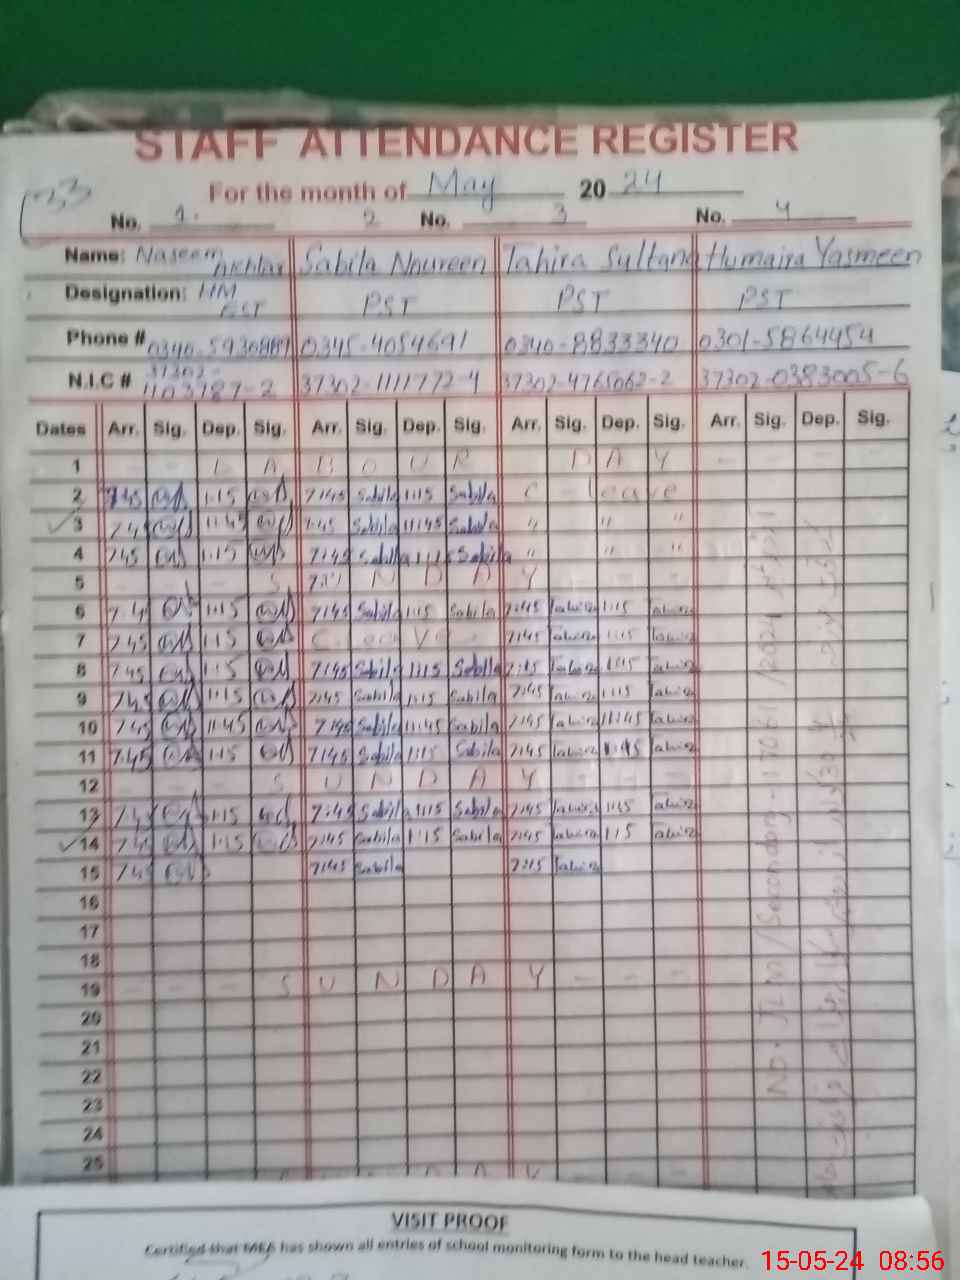 STAFF ATTENDANCE REGISTER
For the month of May 2024
No. 1. 2 No. 3 No. 4
Name: Naseem Akhtar Sabila Noureen Tahira Sultana Humaira Yasmeen
Designation: HM EST PST PST PST
Phone # 0345-4054691 0340-8833340 0301-5864454
N.I.C # 37302-1103787-2 37302-1111772-4 37302-4765062-2 37302-0383005-6
Dates Arr. Sig. Dep. Sig. Arr. Sig. Dep. Sig. Arr. Sig. Dep. Sig. Arr. Sig. Dep. Sig.
1 - - L A B O U R D A Y - - - -
2 7:45 1:15 7:45 Sabila 1:15 Sabila C - leave
3 7:45 11:45 7:45 Sabila 11:45 Sabila " " "
4 7:45 1:15 7:45 Sabila 1:15 Sabila " " "
5 - - - S U N D A Y
6 7:45 1:15 7:45 Sabila 1:15 Sabila 7:45 Tahira 1:15 Tahira
7 7:45 1:15 C. leave 7:45 Tahira 1:15 Tahira
8 7:45 1:15 7:45 Sabila 1:15 Sabila 7:45 Tahira 1:15 Tahira
9 7:45 1:15 7:45 Sabila 1:15 Sabila 7:45 Tahira 1:15 Tahira
10 7:45 11:45 7:45 Sabila 11:45 Sabila 7:45 Tahira 11:45 Tahira
11 7:45 1:15 7:45 Sabila 1:15 Sabila 7:45 Tahira Tahira
12 - - - S U N D A Y - - -
13 7:45 1:15 7:45 Sabila 1:15 Sabila 7:45 Tahira 1:15 Tahira
14 7:45 1:15 7:45 Sabila 1:15 Sabila 7:45 Tahira 1:15 Tahira
15 7:45 7:45 Sabila 7:45 Tahira
16
17
18
19 - - - S U N D A Y - - -
20
21
22
23
24
25
VISIT PROOF
Certified that MEA has shown all entries of school monitoring form to the head teacher.
15-05-24 08:56